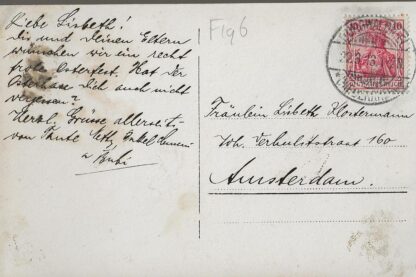 Liebe Lisbeth!
Dir und Deinen Eltern
wünschen wir ein recht
frohes Osterfest. Hat der
Osterhase Dich auch nicht
vergessen?
Herzl. Grüsse allerseits
von Tante Onkel
u Bubi
Fig 6
Fräulein Lisbeth Klostermann
Joh. Verhulststraat 160
Amsterdam.